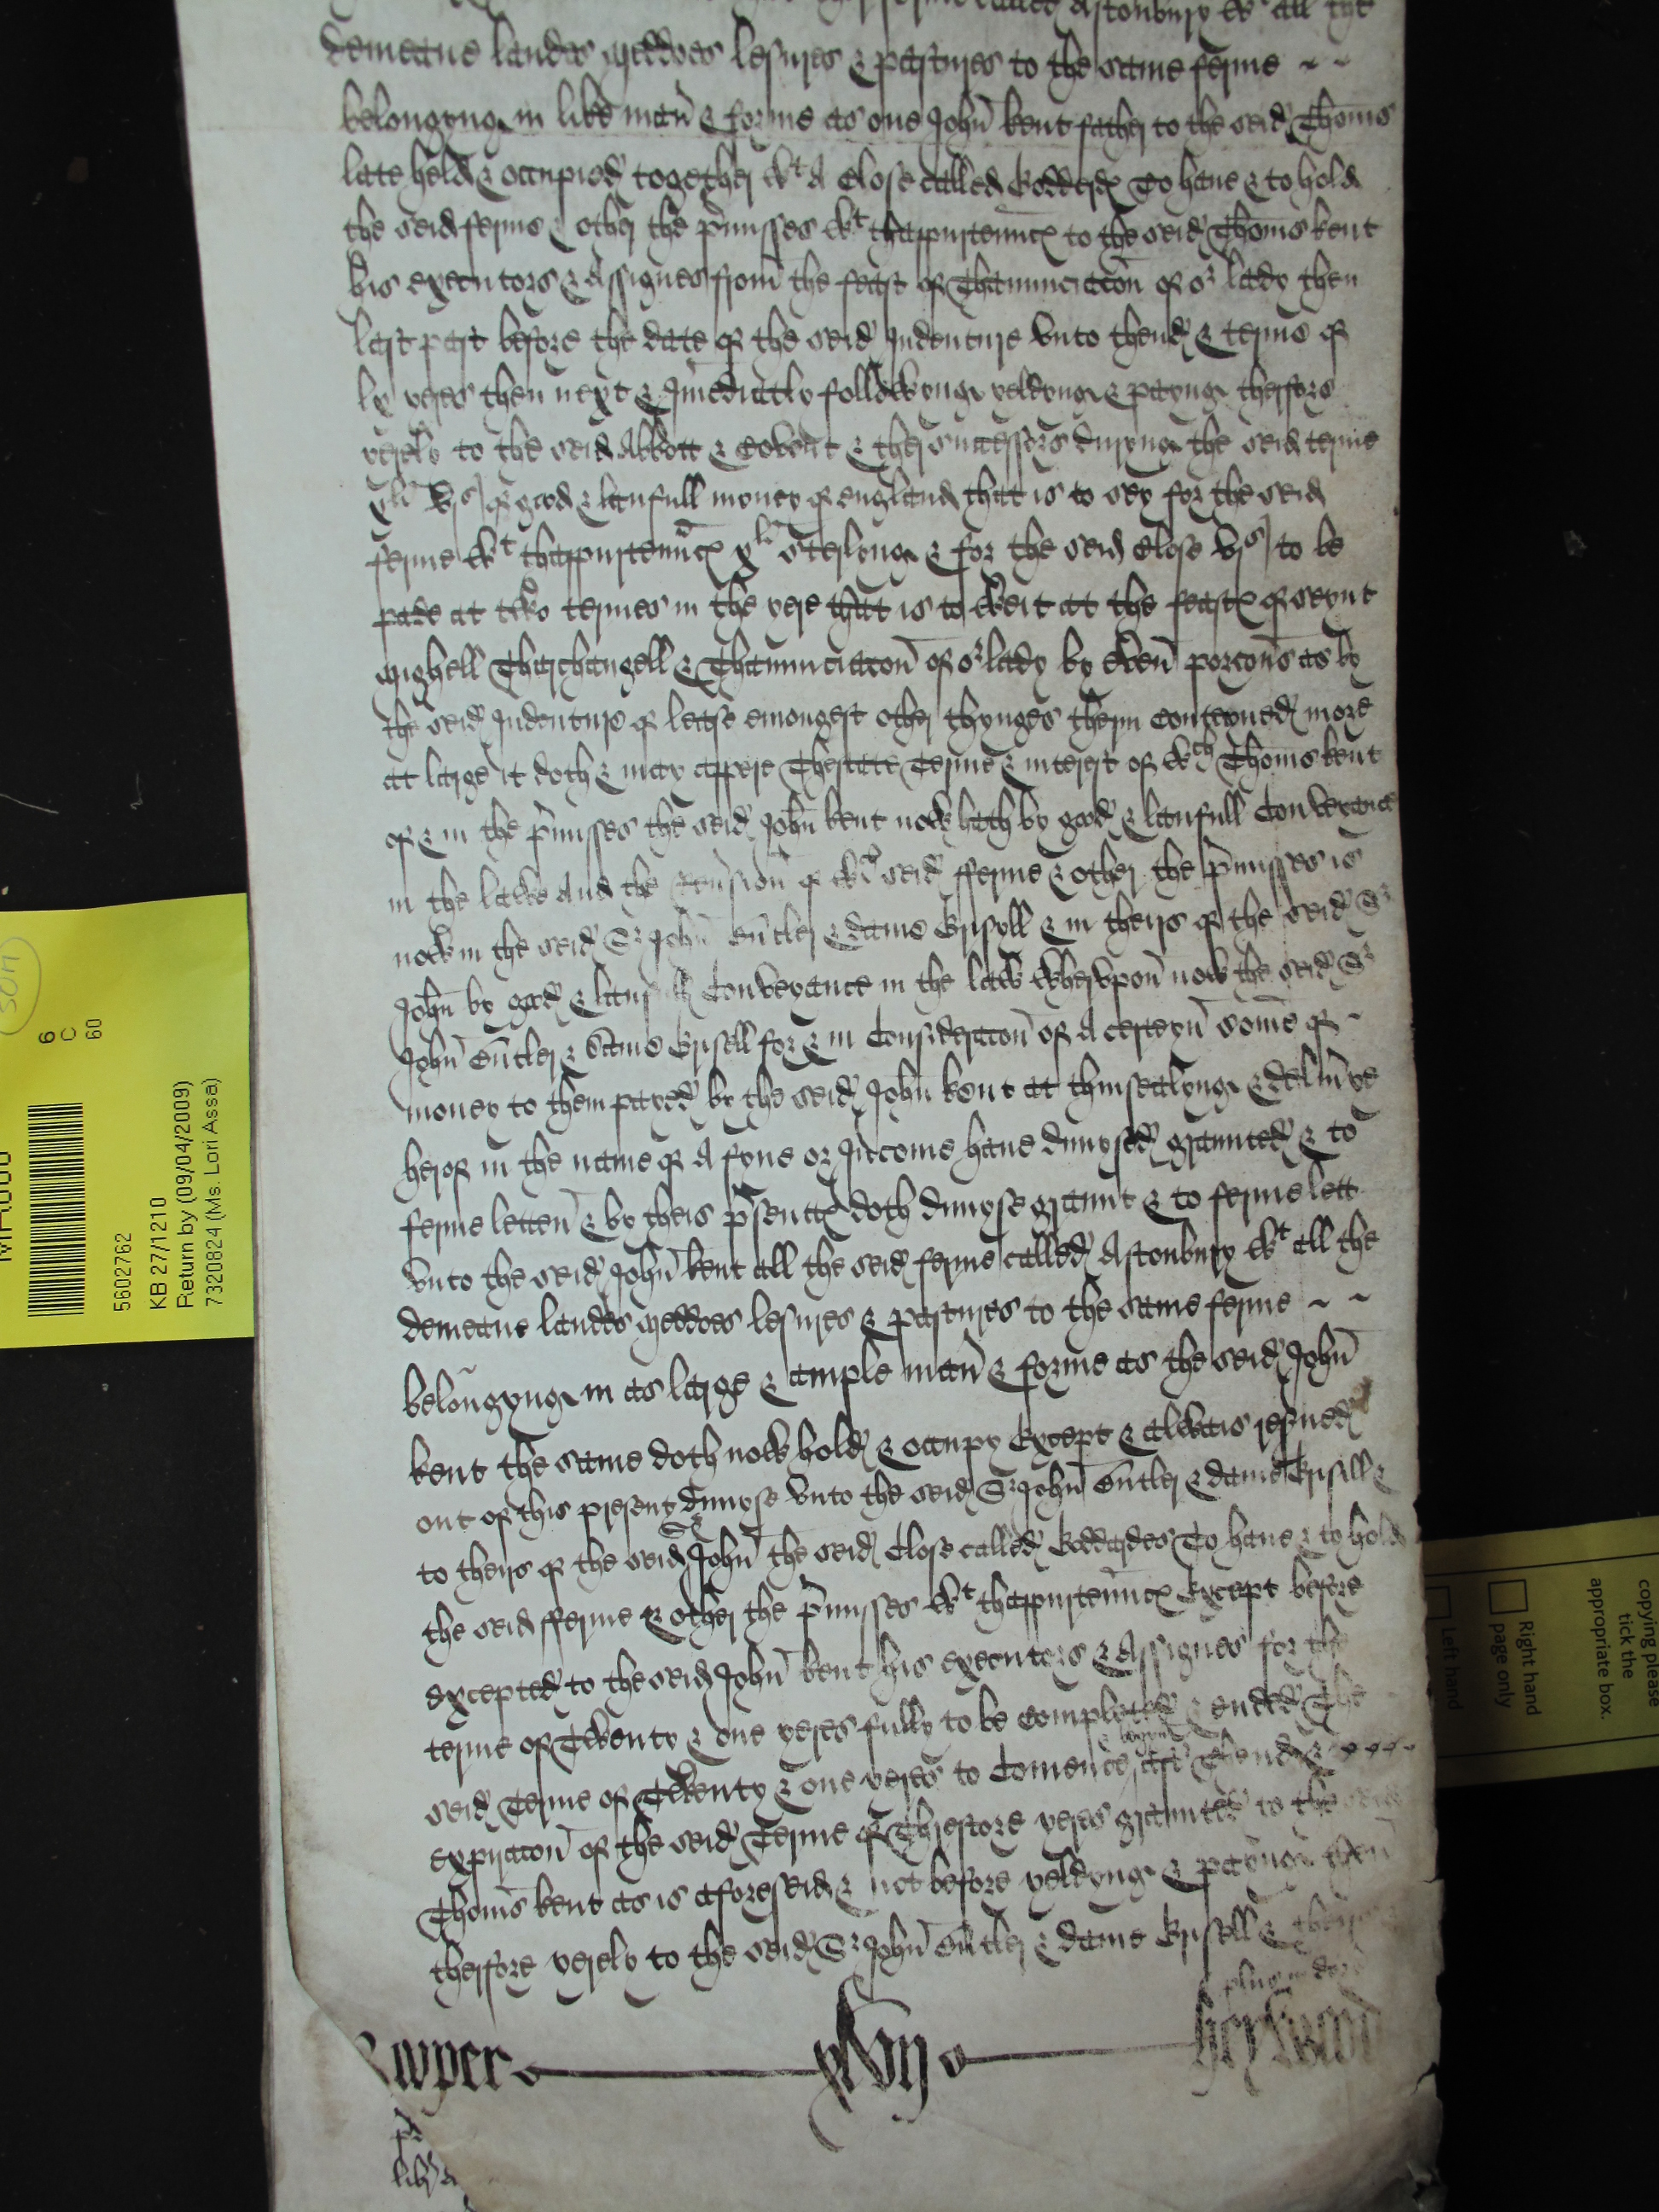 called Astonbury wt all the
demeane landes meddoes lesures & pastures to the same ferme ~ ~
belongyng in like man & forme as one John kent father to the seid Thoms
late held & occupied together wt A Close called Goddardes To have & to hold
the seid ferme & other the pmisses wt thappurtennces to the seid Thoms kent
his executors & Assignes from the feast of Thannunciacon of or lady then
last past before the date of the seid Indenture vnto thend & terme of
lx yeres then next & Imediatly followyng yeldyng & payng therfore
yerely to the seid Abbott & Covent & their successors duryng the seid terme
xli vjs of good & laufull money of england that is to sey for the seid
ferme wt thappurtennces xli sterlyng & for the seid Close vjs to be
pade at two termes in the yere that is to weit at the feastes of seynt
Mighell Tharchangell & Thannunciacon of or lady by even porcons as by
the seid Indenture of lease emongest other thynges therin conteyned more
at large it doth & may appere Thestate Terme & interest of wch Thoms kent
of & in the pmisses the seid John kent now hath by good & laufull Conveyance
in the lawe And the reusion of wch seid fferme & other the pmisses is
now in the seid Sr John Butler & dame Grisell & in theirs of the seid Sr
John by good & laufull Conveyance in the law Wherupon now the seid Sr
John Butler & dame Grisell for & in Consideracon of A certeyn some of ~
money to them payed by the seid John kent at thinsealyng & delyuye
herof in the name of A fyne or Income have dimysed graunted & to
ferme letten & by theis psentes doth dimyse graunt & to ferme lett
vnto the seid John kent all the seid ferme called Astonbury wt all the
demeane landes meddoes lesures & pastures to the same ferme ~ ~
belongyng in as large & ample man & forme as the seid John
kent the same doth now hold & occupy Except & alwais resued
out of this present dimyse vnto the seid Sr John Butler & dame Grisell &
to theirs of the seid Sr John the seid Close called Goddardes To have & to hold
the seid fferme & other the pmisses wt thappurtennces Except before
excepted to the seid John kent his executors & Assignes for the
terme of Twenty & one yeres fully to be completed & ended The
seid Terme of Twenty & one yeres to Comence & begyn aft Thend &
expiracon of the seid Terme of Threscore yeres graunted to the seid
Thoms kent as is aforeseid & not before yeldyng & payng
therfore yerely to the seid Sr John Butler & dame Grisell &
Rooper xlvij Heywood
5602762
KB 27/1210
Return by (09/04/2009)
7320824 (Ms. Lori Assa)
6
C
60
copying please
tick the
appropriate box.
Right hand
page only
Left hand